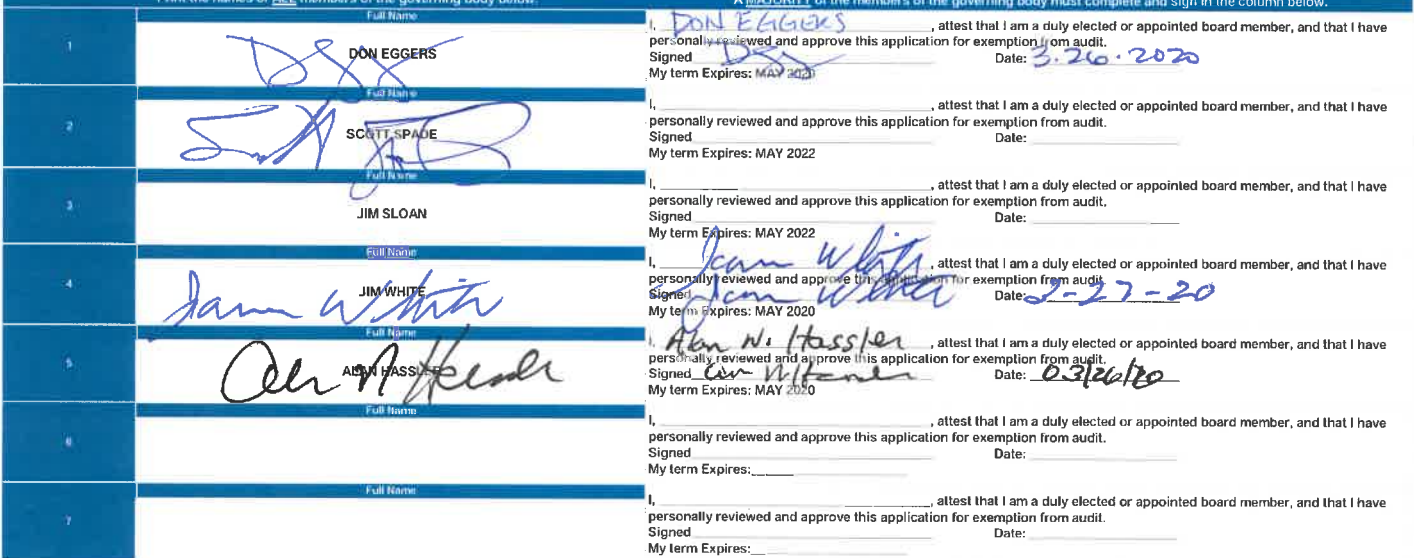 Print the names of ALL members of the governing body below.
A MAJORITY of the members of the governing body must complete and sign in the column below.
1
Full Name
DON EGGERS
I, DON EGGERS, attest that I am a duly elected or appointed board member, and that I have
personally reviewed and approve this application for exemption from audit.
Signed Date: 3.26.2020
My term Expires: MAY 2020
2
Full Name
SCOTT SPADE
I, , attest that I am a duly elected or appointed board member, and that I have
personally reviewed and approve this application for exemption from audit.
Signed Date:
My term Expires: MAY 2022
3
Full Name
JIM SLOAN
I, , attest that I am a duly elected or appointed board member, and that I have
personally reviewed and approve this application for exemption from audit.
Signed Date:
My term Expires: MAY 2022
4
Full Name
JIM WHITE
I, White, attest that I am a duly elected or appointed board member, and that I have
personally reviewed and approve this application for exemption from audit.
Signed Date: -27-20
My term Expires: MAY 2020
5
Full Name
ALAN HASSLER
I, Alan N. Hassler, attest that I am a duly elected or appointed board member, and that I have
personally reviewed and approve this application for exemption from audit.
Signed Date: 03/26/20
My term Expires: MAY 2020
6
Full Name
I, , attest that I am a duly elected or appointed board member, and that I have
personally reviewed and approve this application for exemption from audit.
Signed Date:
My term Expires:
7
Full Name
I, , attest that I am a duly elected or appointed board member, and that I have
personally reviewed and approve this application for exemption from audit.
Signed Date:
My term Expires: